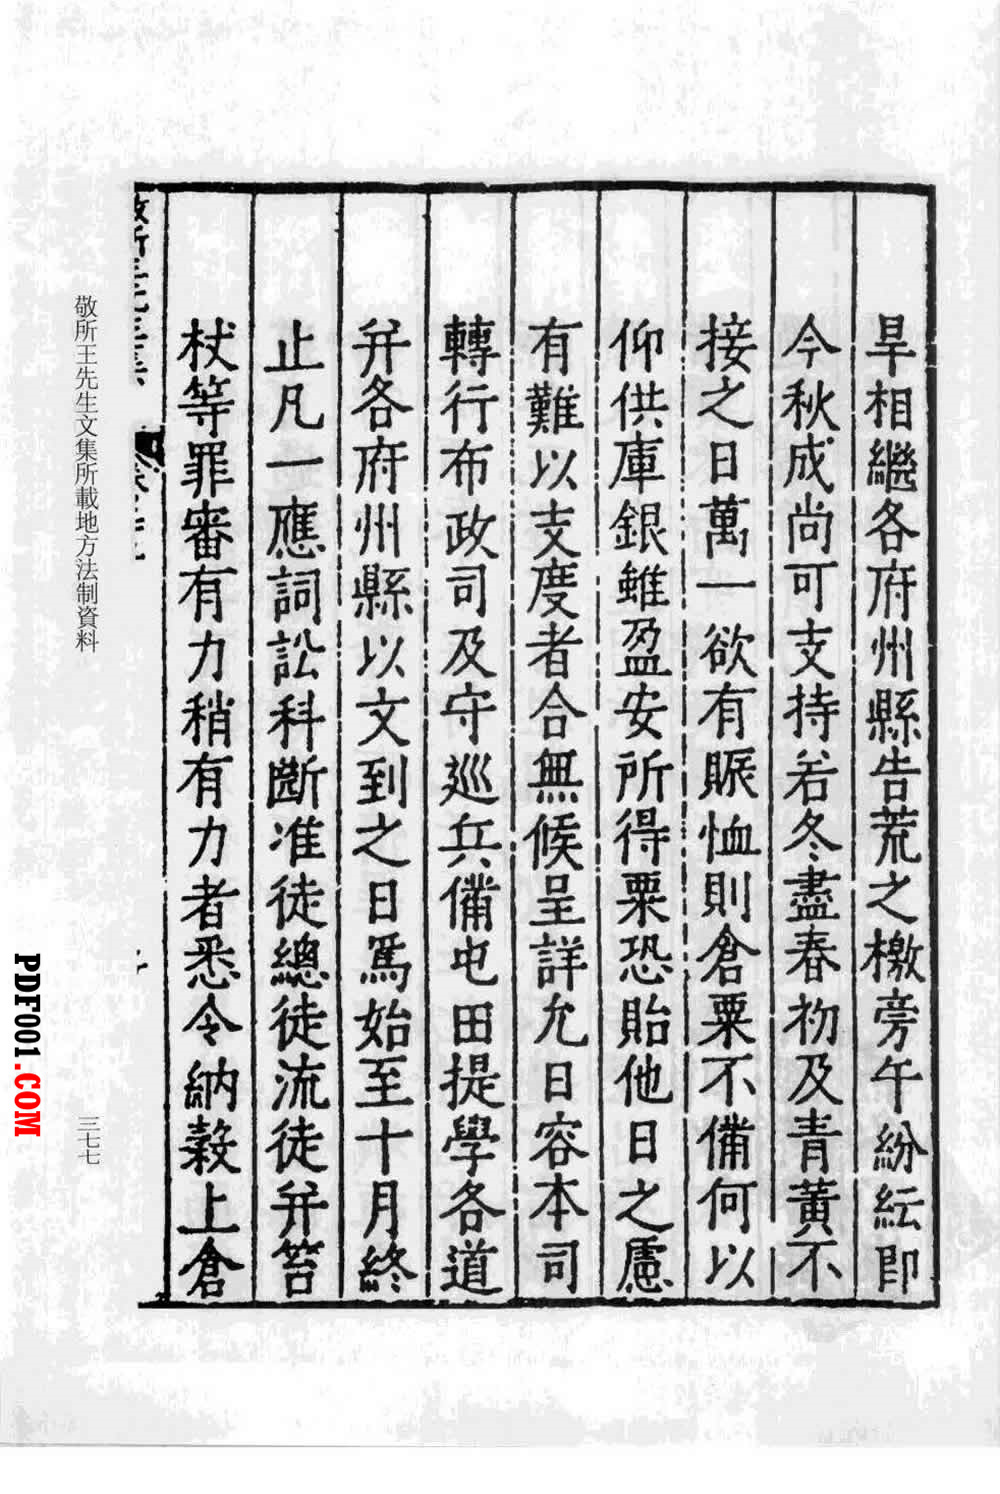 旱相繼各府州縣告荒之檄旁午紛紜即
今秋成尚可支持若冬盡春初及青黃不
接之日萬一欲有賑恤則倉粟不備何以
仰供庫銀雖盈安所得粟恐貽他日之慮
有難以支度者合無候呈詳允日容本司
轉行布政司及守巡兵備屯田提學各道
并各府州縣以文到之日為始至十月終
止凡一應詞訟科斷准徒總徒流徒并笞
杖等罪審有力稍有力者悉令納穀上倉
敬所王先生文集所載地方法制資料
三七七
PDF001.COM